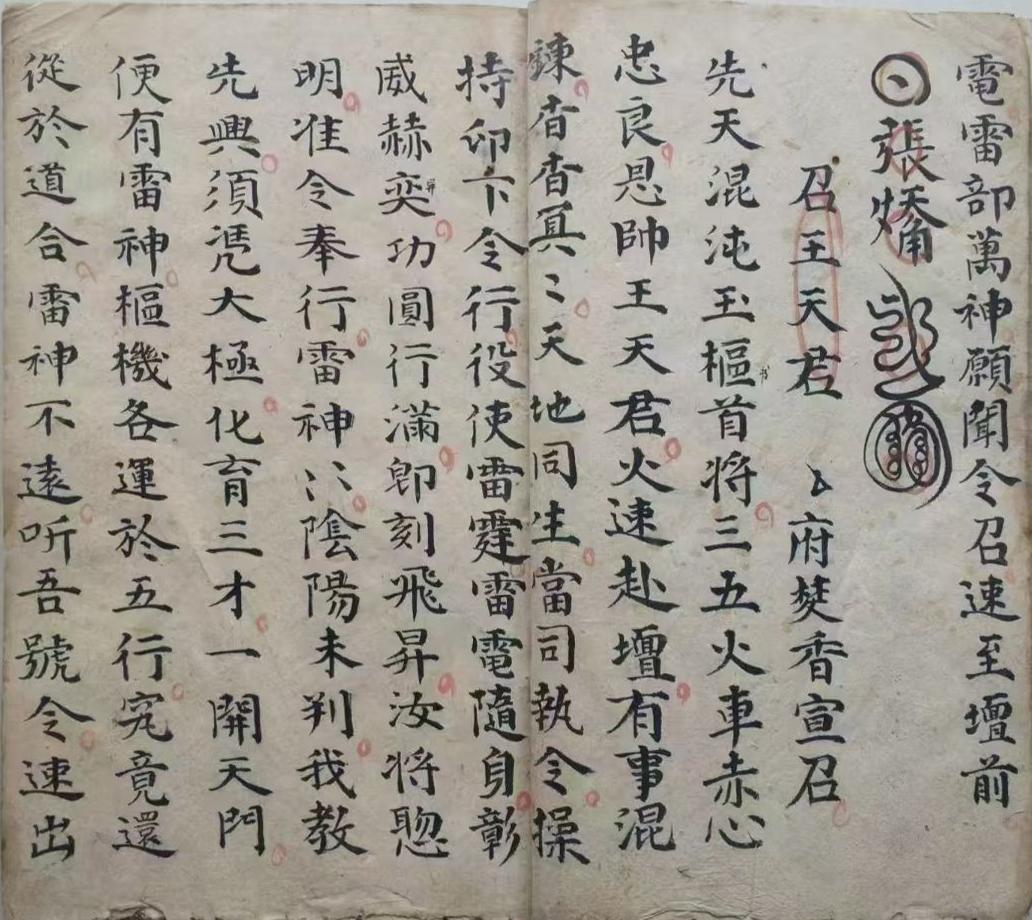 電雷部萬神願聞令召速至壇前
張
召王天君 府焚香宣召
先天混沌玉樞首将三五火車赤心
忠良恩帥王天君火速赴壇有事混
錬杳杳冥〻天地同生當司執令操
持印下令行役使雷霆雷電隨身彰
威赫奕功圓行滿即刻飛昇汝将聦
明准令奉行雷神〻陰陽未判我教
先興須凴大極化育三才一開天門
便有雷神樞機各運於五行究竟還
從於道合雷神不遠听吾號令速出